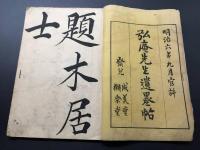 明治六年九月官許
弘庵先生遺墨帖
發兌
題木居
士